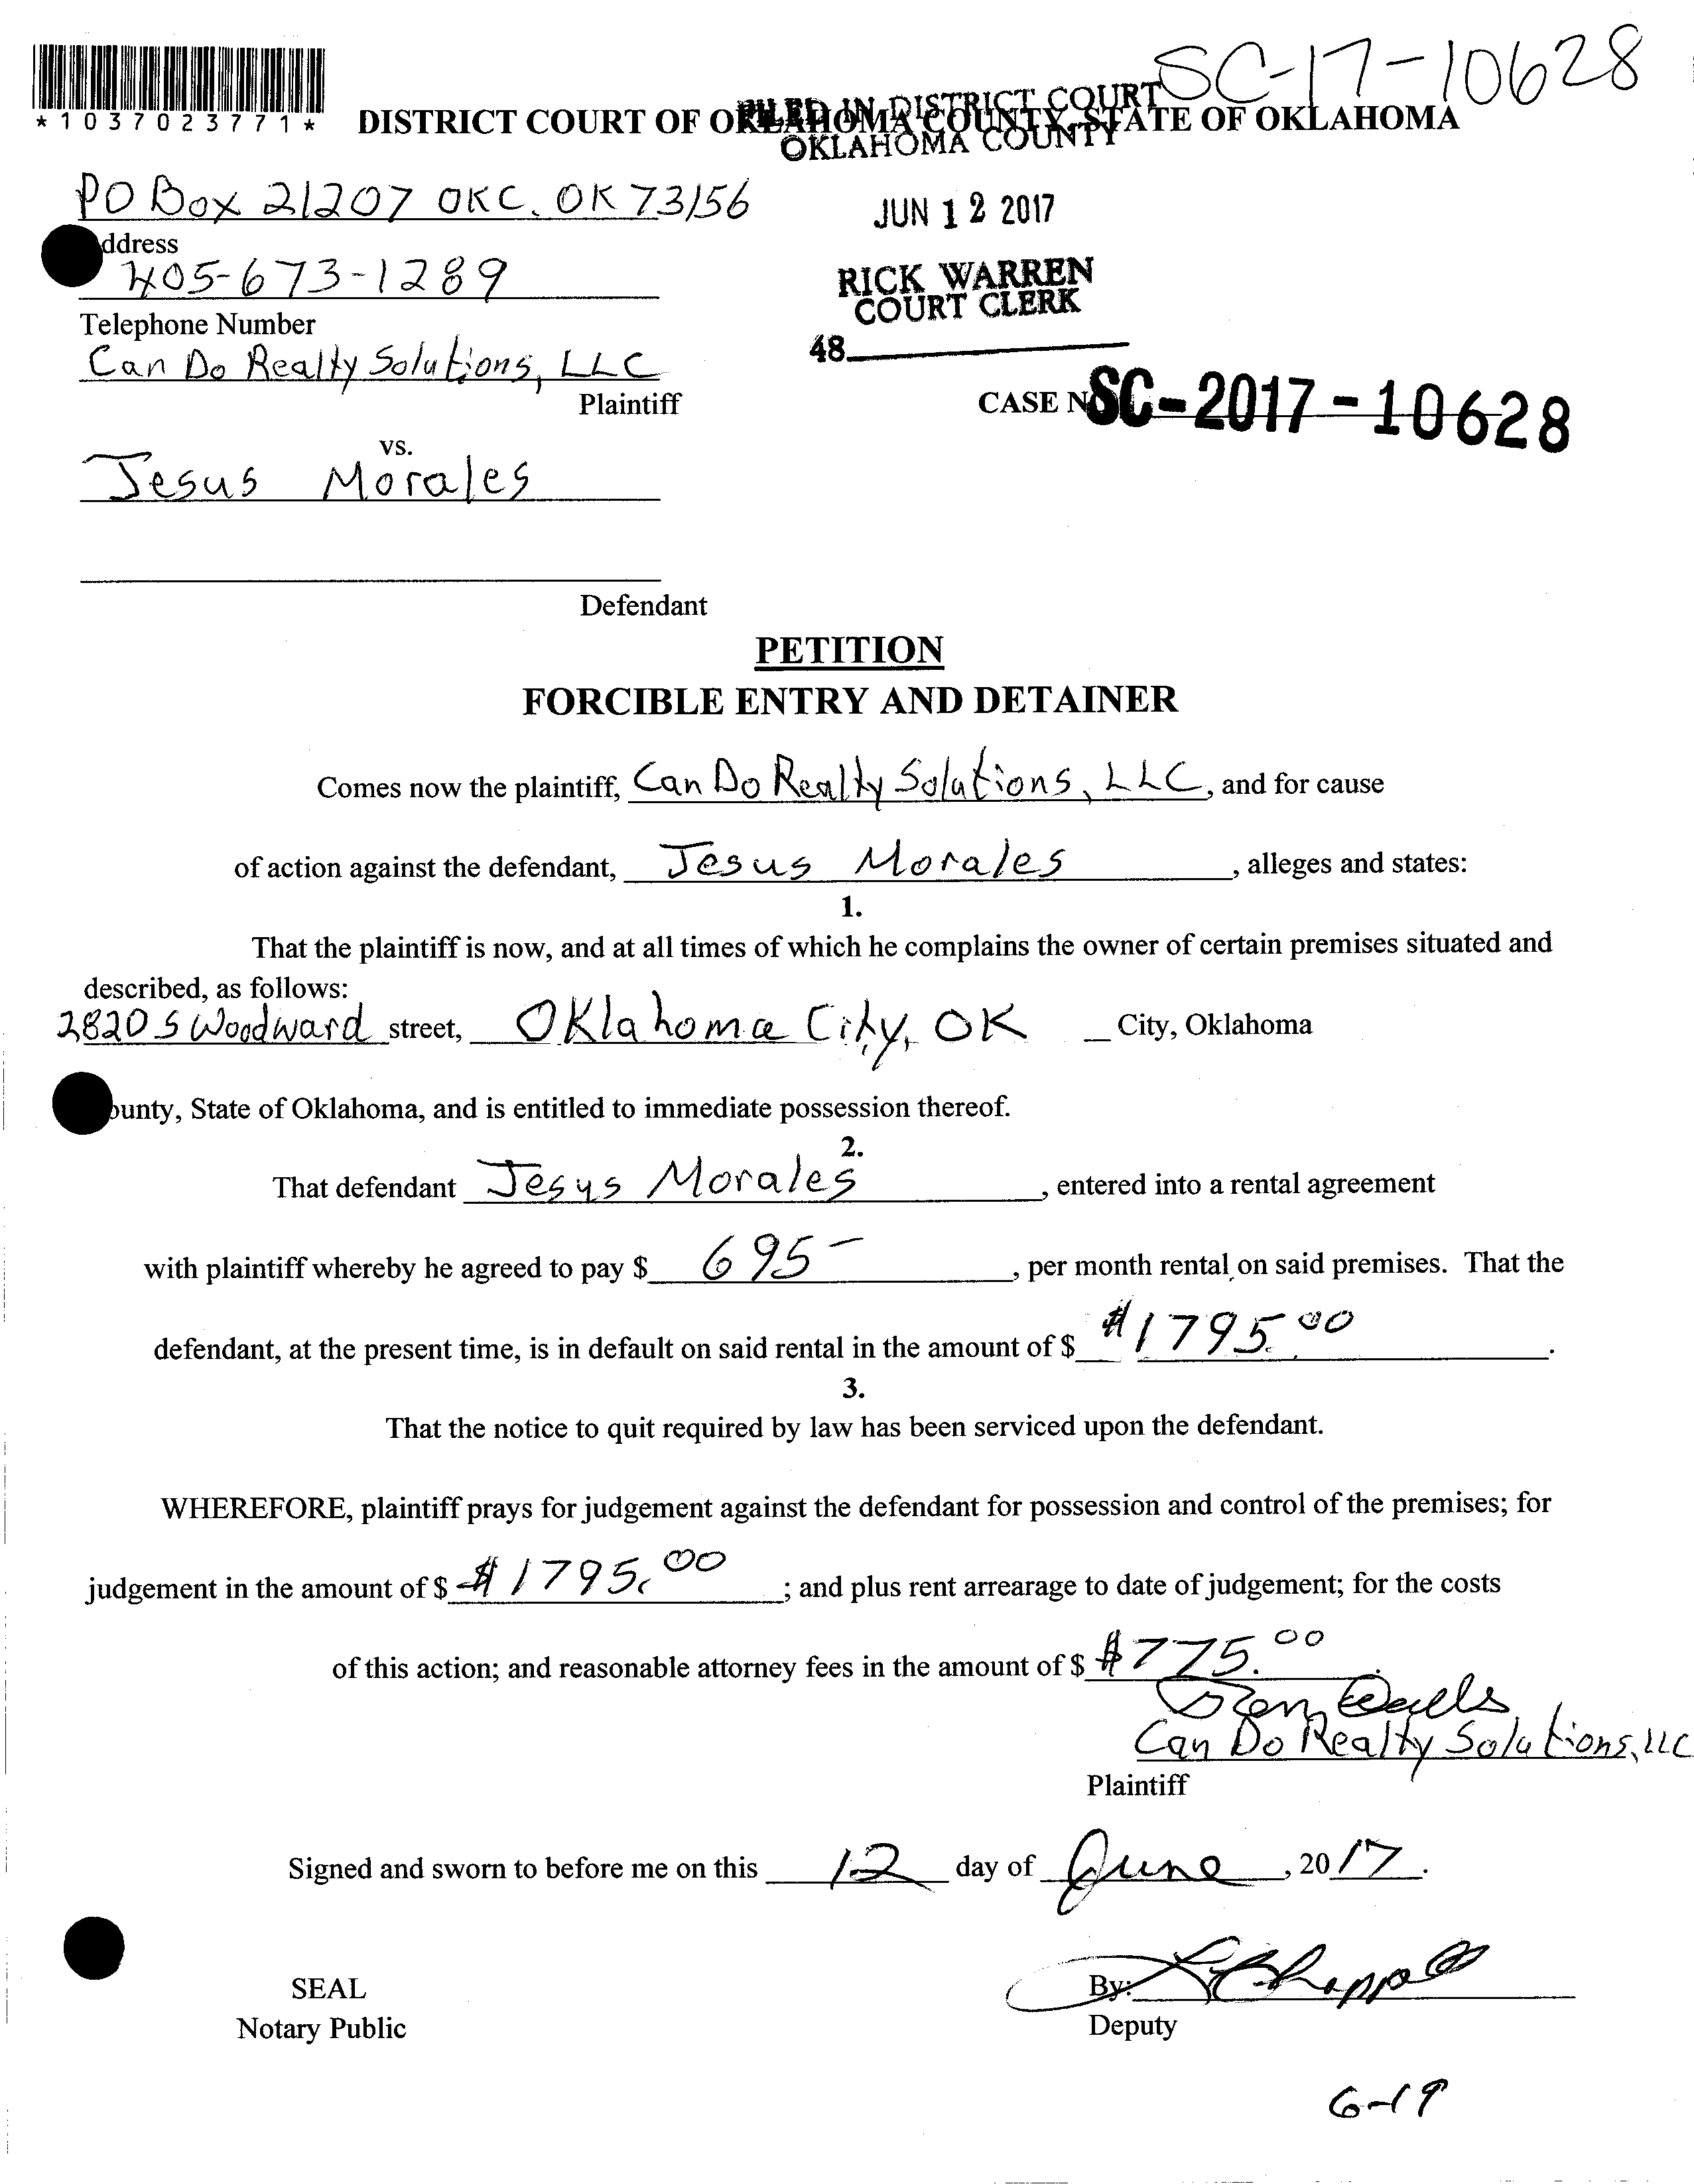 SC-17-10628
*1037023771*
DISTRICT COURT OF OKLAHOMA COUNTY, STATE OF OKLAHOMA
FILED IN DISTRICT COURT
OKLAHOMA COUNTY
PO Box 21207 OKC, OK 73156
JUN 12 2017
ddress
405-673-1289
RICK WARREN
COURT CLERK
Telephone Number
48
Can Do Realty Solutions, LLC
Plaintiff
CASE NO SC-2017-10628
vs.
Jesus Morales
Defendant
PETITION
FORCIBLE ENTRY AND DETAINER
Comes now the plaintiff, Can Do Realty Solutions, LLC, and for cause
of action against the defendant, Jesus Morales, alleges and states:
1.
That the plaintiff is now, and at all times of which he complains the owner of certain premises situated and
described, as follows:
2820 S Woodward street, Oklahoma City, OK City, Oklahoma
ounty, State of Oklahoma, and is entitled to immediate possession thereof.
2.
That defendant Jesus Morales, entered into a rental agreement
with plaintiff whereby he agreed to pay $ 695-, per month rental on said premises. That the
defendant, at the present time, is in default on said rental in the amount of $ $1795.00.
3.
That the notice to quit required by law has been serviced upon the defendant.
WHEREFORE, plaintiff prays for judgement against the defendant for possession and control of the premises; for
judgement in the amount of $ $1795.00; and plus rent arrearage to date of judgement; for the costs
of this action; and reasonable attorney fees in the amount of $ $775.00.
Can Do Realty Solutions, LLC
Plaintiff
Signed and sworn to before me on this 12 day of June, 2017.
SEAL
By:
Notary Public
Deputy
6-19